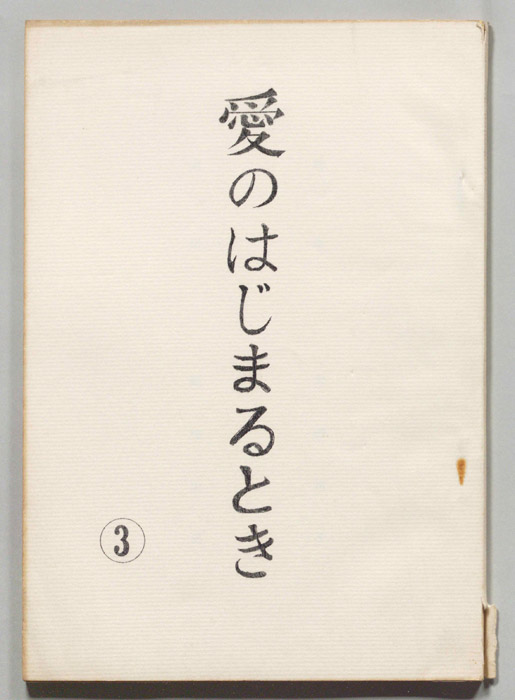 愛のはじまるとき
3